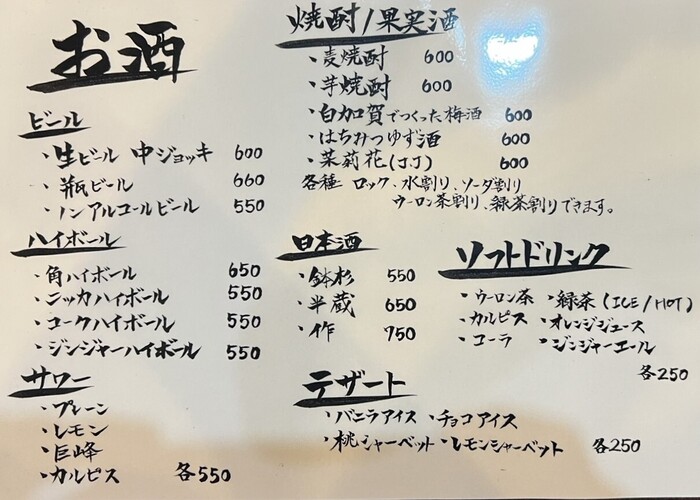 お酒
ビール
・生ビール 中ジョッキ 600
・瓶ビール 660
・ノンアルコールビール 550
ハイボール
・角ハイボール 650
・ニッカハイボール 550
・コークハイボール 550
・ジンジャーハイボール 550
サワー
・プレーン
・レモン
・巨峰
・カルピス 各550
焼酎/果実酒
・麦焼酎 600
・芋焼酎 600
・白加賀でつくった梅酒 600
・はちみつゆず酒 600
・茉莉花(JJ) 600
各種 ロック、水割り、ソーダ割り
ウーロン茶割り、緑茶割りできます。
日本酒
・鉢杉 550
・半蔵 650
・作 750
ソフトドリンク
・ウーロン茶 ・緑茶(ICE/HOT)
・カルピス ・オレンジジュース
・コーラ ・ジンジャーエール
各250
デザート
・バニラアイス ・チョコアイス
・桃シャーベット ・レモンシャーベット 各250